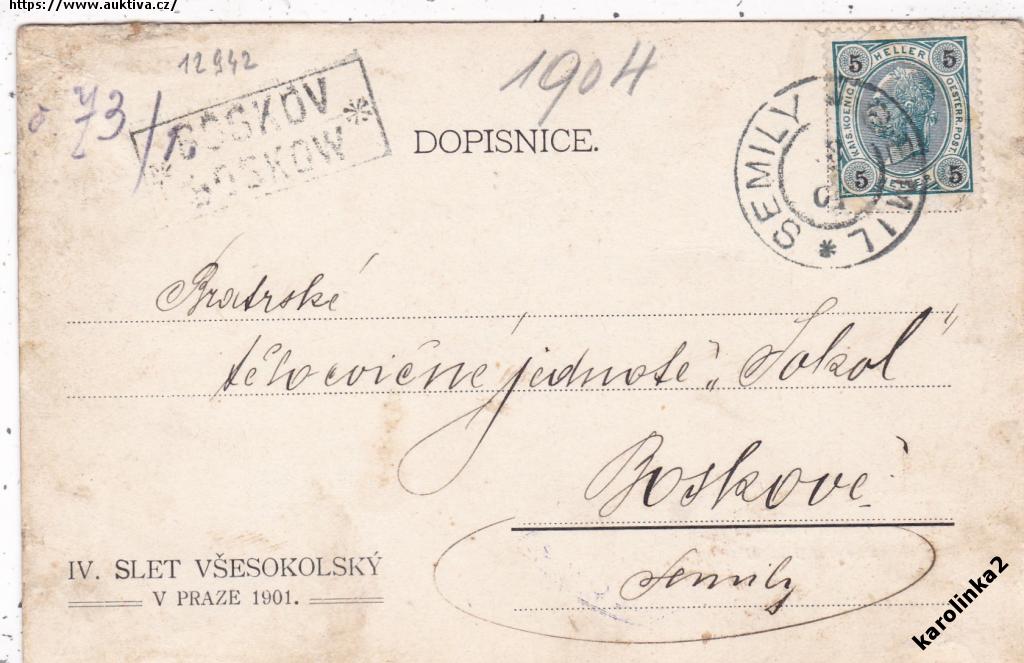 https://www.auktiva.cz/
12942
1904
73/
BOSKOV
BOSKOW
DOPISNICE.
SEMILY
SEMIL
01
5 HELLER 5
KAIS. KOENIGL. OESTERR. POST
5 HELLER 5
Bratrské
tělocvičné jednotě „Sokol“
Boskově
Semily
IV. SLET VŠESOKOLSKÝ
V PRAZE 1901.
karolinka2